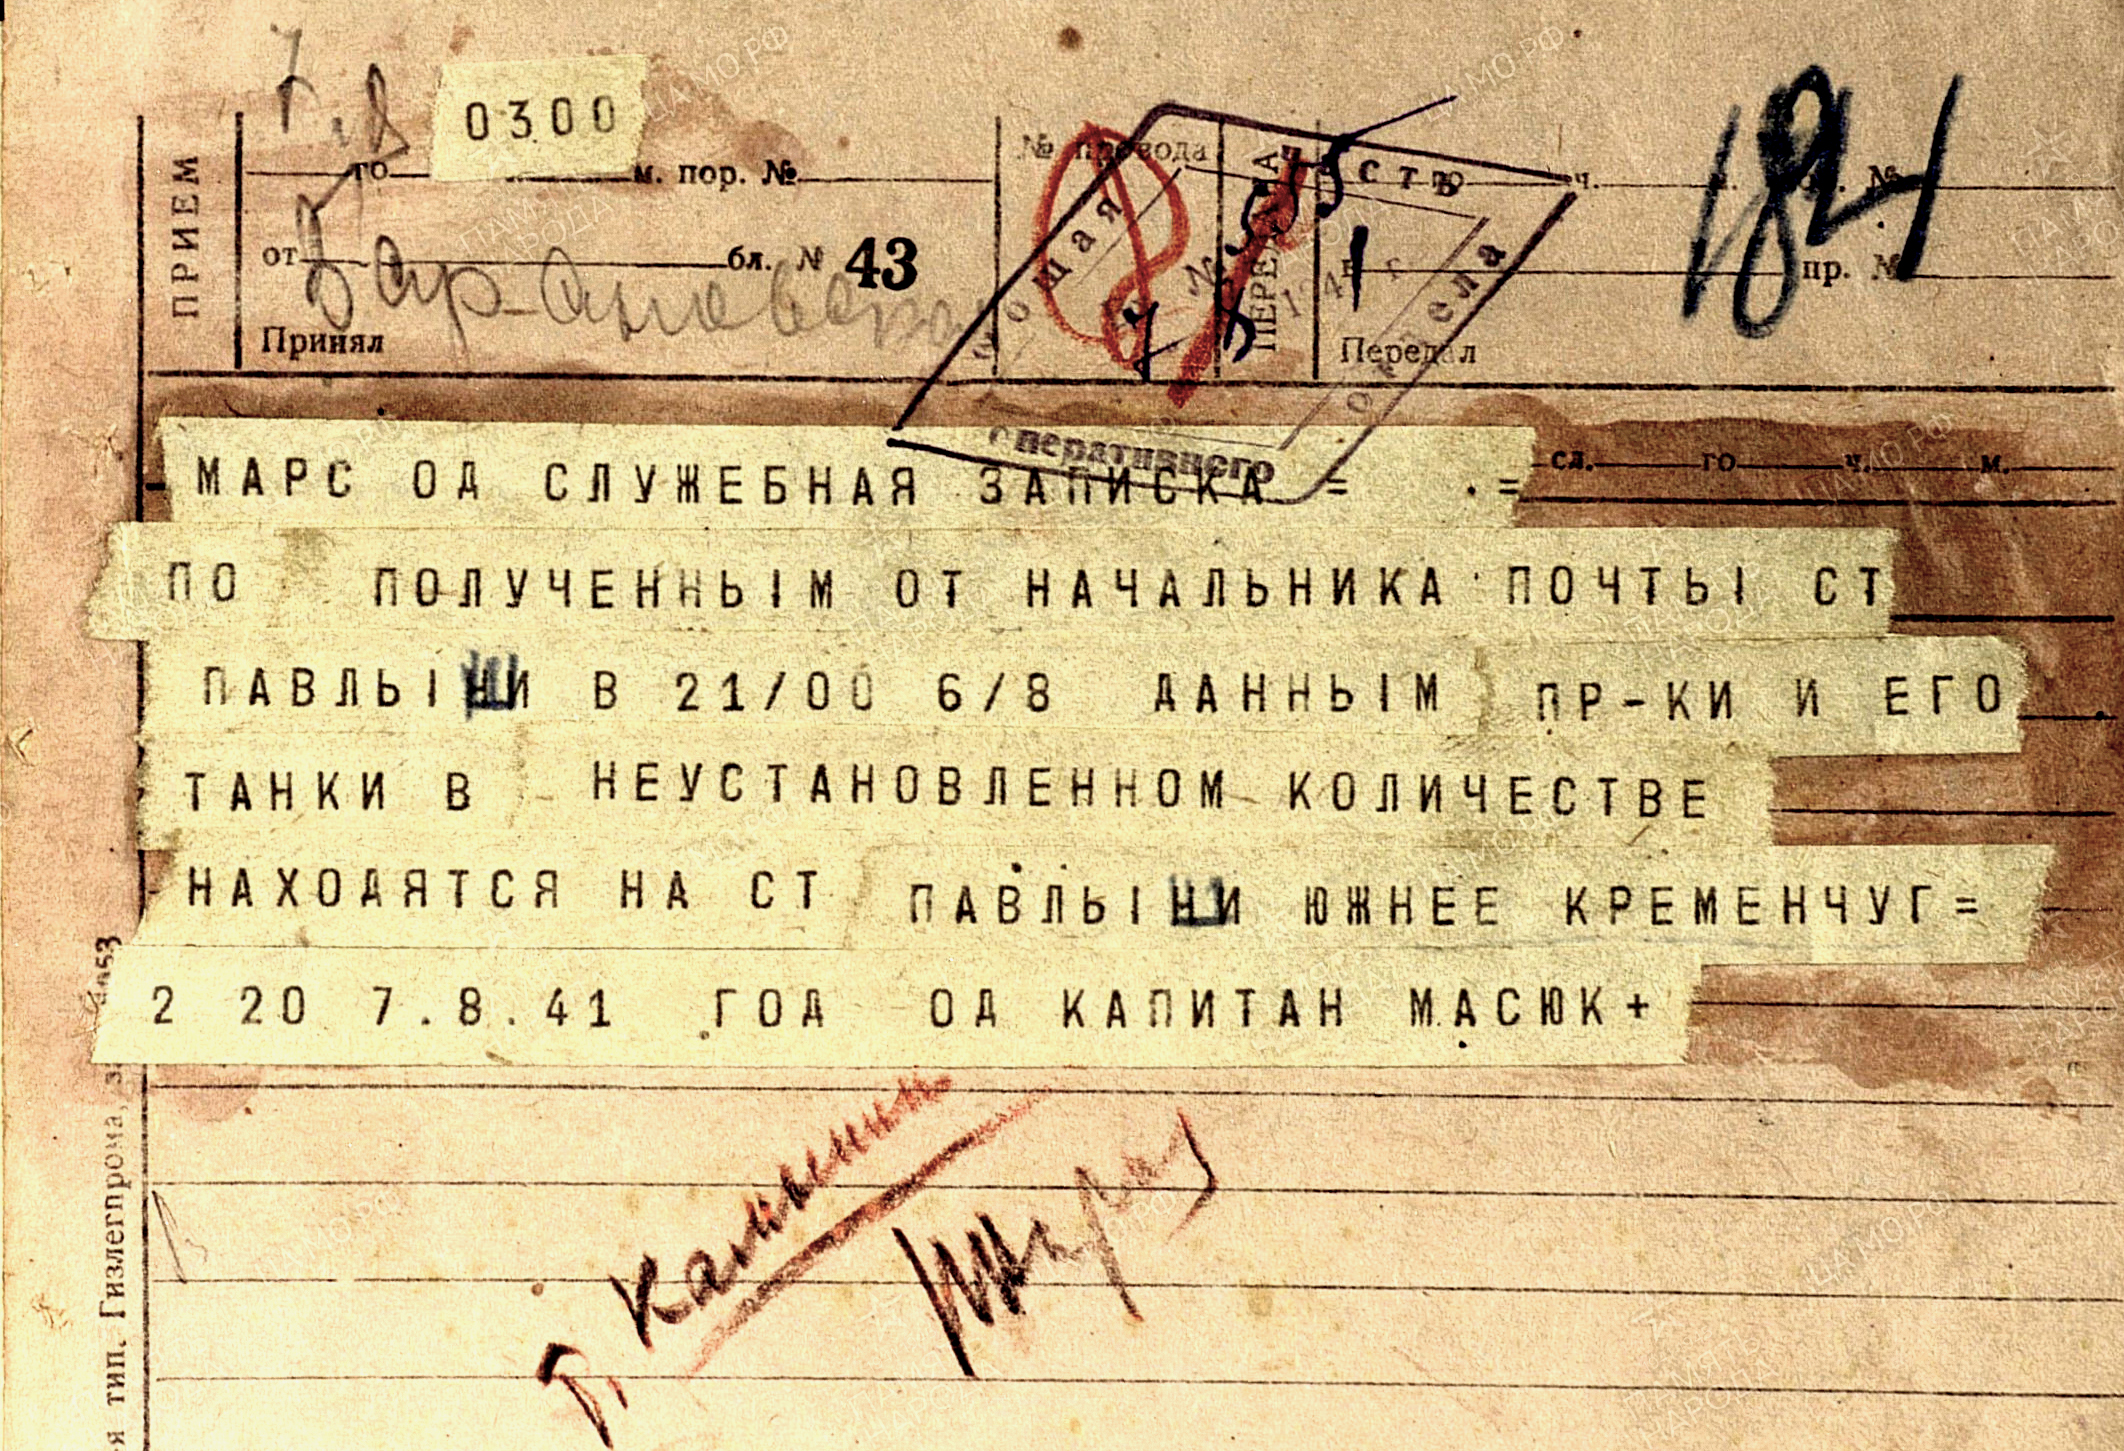 7.8
0300
ПРИЕМ
го м. пор. №
№ провода
ПЕРЕДАЧА
го ч. №
182
от бл. № 43
пр. №
Принял
Передал
оперативного
отдела
сл. го ч. м.
МАРС ОД СЛУЖЕБНАЯ ЗАПИСКА = =
ПО ПОЛУЧЕННЫМ ОТ НАЧАЛЬНИКА ПОЧТЫ СТ
ПАВЛЫШИ В 21/00 6/8 ДАННЫМ ПР-КИ И ЕГО
ТАНКИ В НЕУСТАНОВЛЕННОМ КОЛИЧЕСТВЕ
НАХОДЯТСЯ НА СТ ПАВЛЫШИ ЮЖНЕЕ КРЕМЕНЧУГ=
2 20 7.8.41 ГОД ОД КАПИТАН МАСЮК+
я тип. Гизлегпрома, з